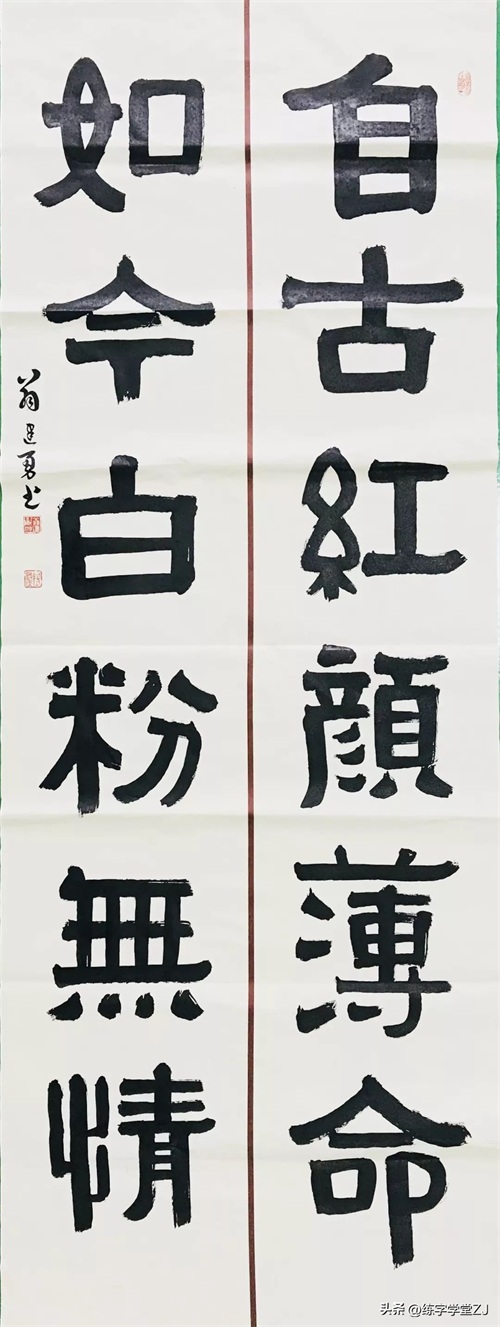 自古紅顔薄命
如今白粉無情
翁建勇书
头条 @练字学堂ZJ